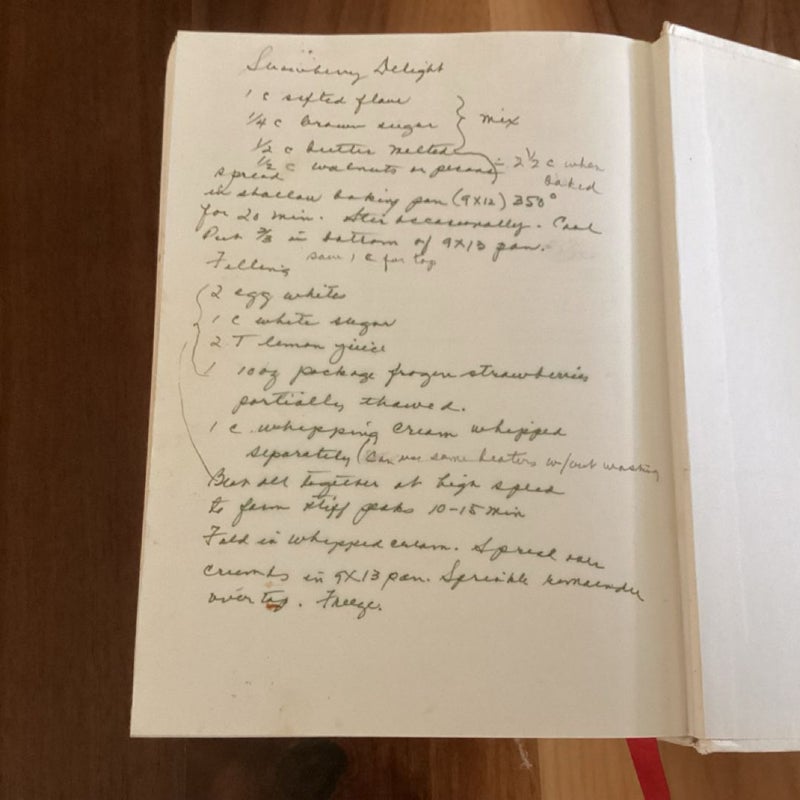 Strawberry Delight
1 c sifted flour
1/4 c brown sugar } mix
1/2 c butter melted
1/2 c walnuts or pecans = 2 1/2 c when baked
spread
in shallow baking pan (9x12) 350°
for 20 min. Stir occasionally. Cool
Put 2/3 in bottom of 9x13 pan.
save 1 c for top
Filling
2 egg whites
1 c white sugar
2 T lemon juice
1 10 oz package frozen strawberries
partially thawed.
1 c whipping cream whipped
separately (can use same beaters w/out washing
Beat all together at high speed
to form stiff peaks 10-15 min
Fold in whipped cream. Spread over
crumbs in 9x13 pan. Sprinkle remainder
over top. Freeze.